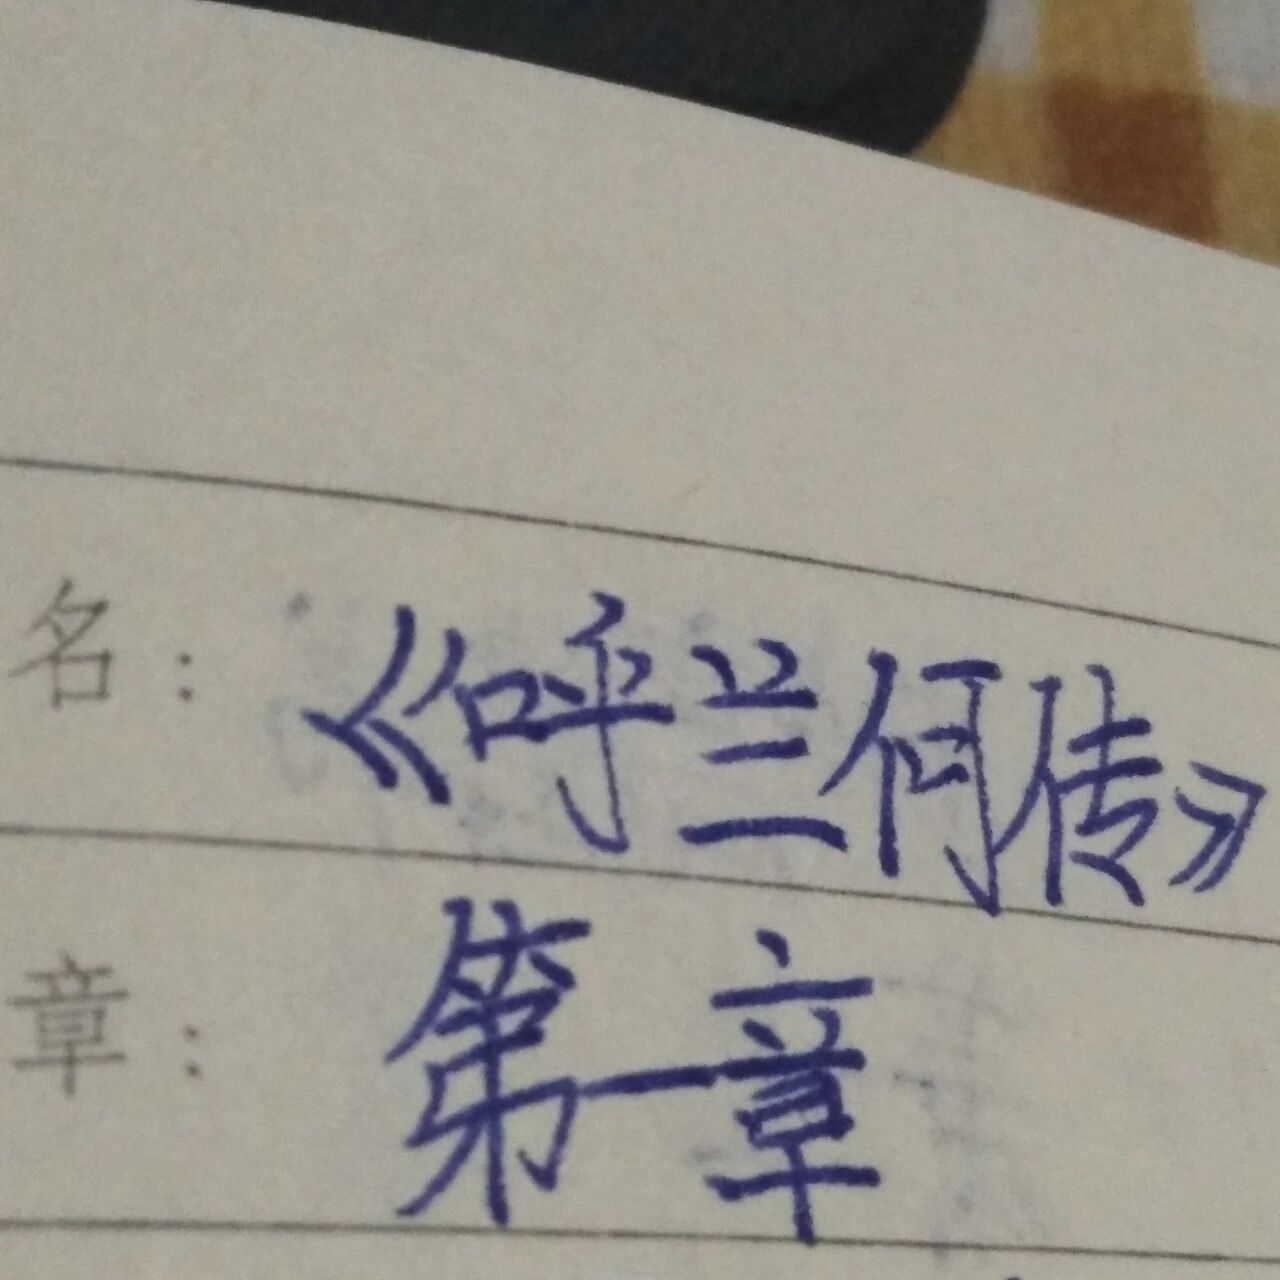 名：《呼兰何传》
章：第一章